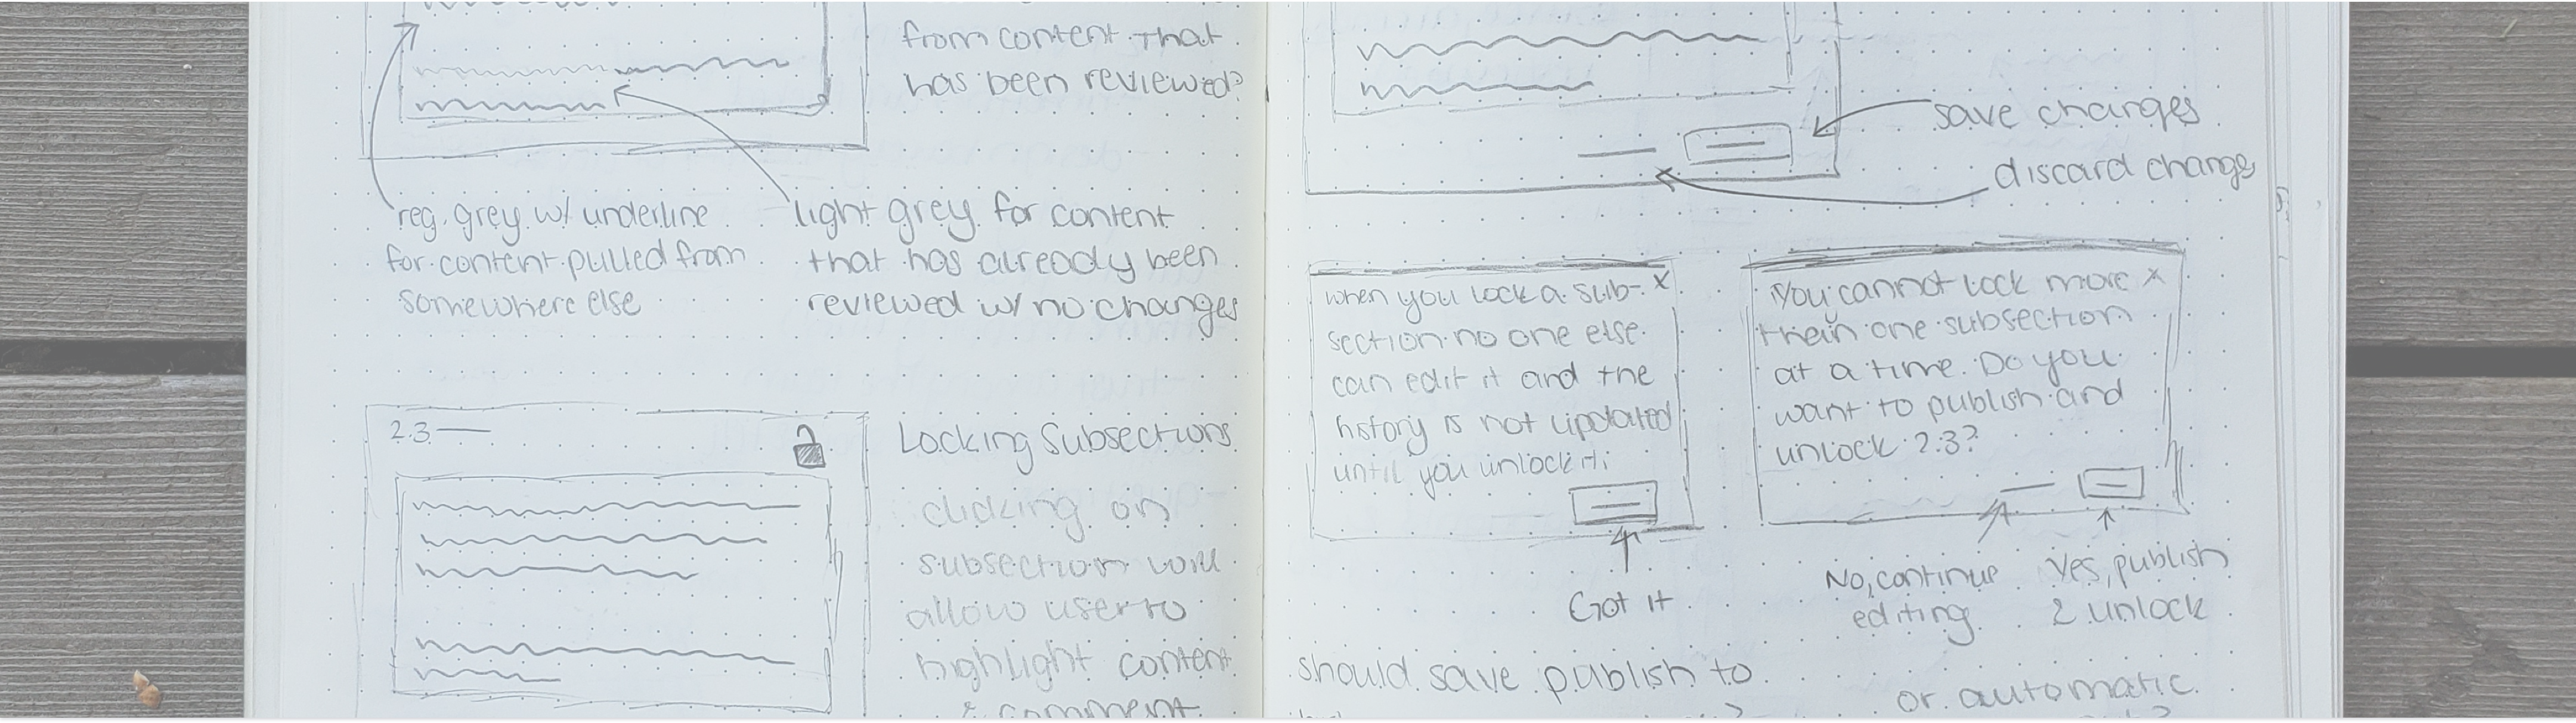 from content that
has been reviewed?
reg. grey w/ underline
for content pulled from
somewhere else
light grey for content
that has already been
reviewed w/ no changes
2.3
Locking Subsections
clicking on
subsection will
allow user to
highlight content
& comment
save changes
discard changes
when you lock a sub- x
section no one else
can edit it and the
history is not updated
until you unlock it.
Got it
You cannot lock more x
than one subsection
at a time. Do you
want to publish and
unlock 2.3?
No, continue
editing
Yes, publish
& unlock
should save publish to
or automatic